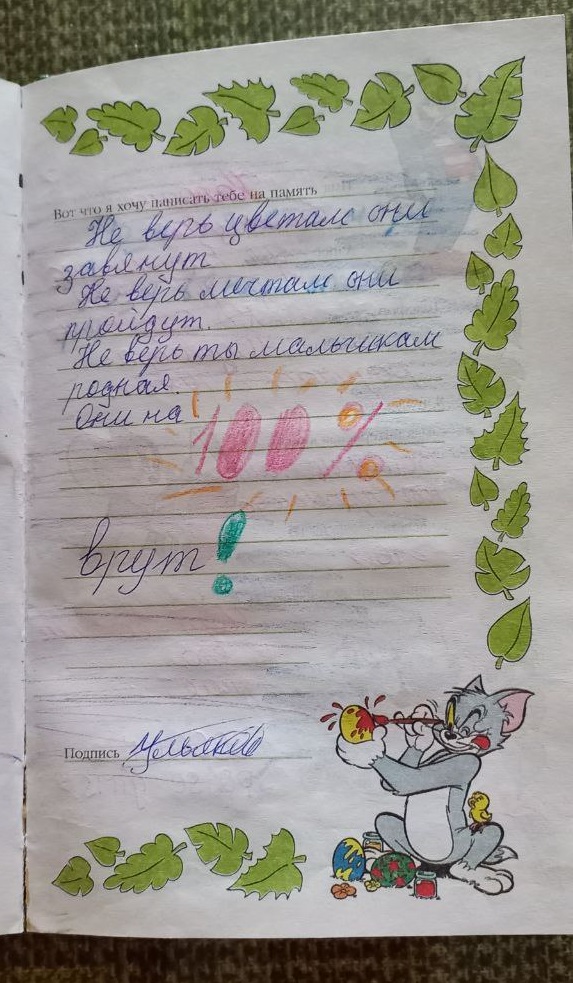 Вот что я хочу написать тебе на память
Не верь цветам они
завянут
Не верь мечтам они
пройдут.
Не верь ты мальчикам
родная.
Они на 100%
врут!
Подпись